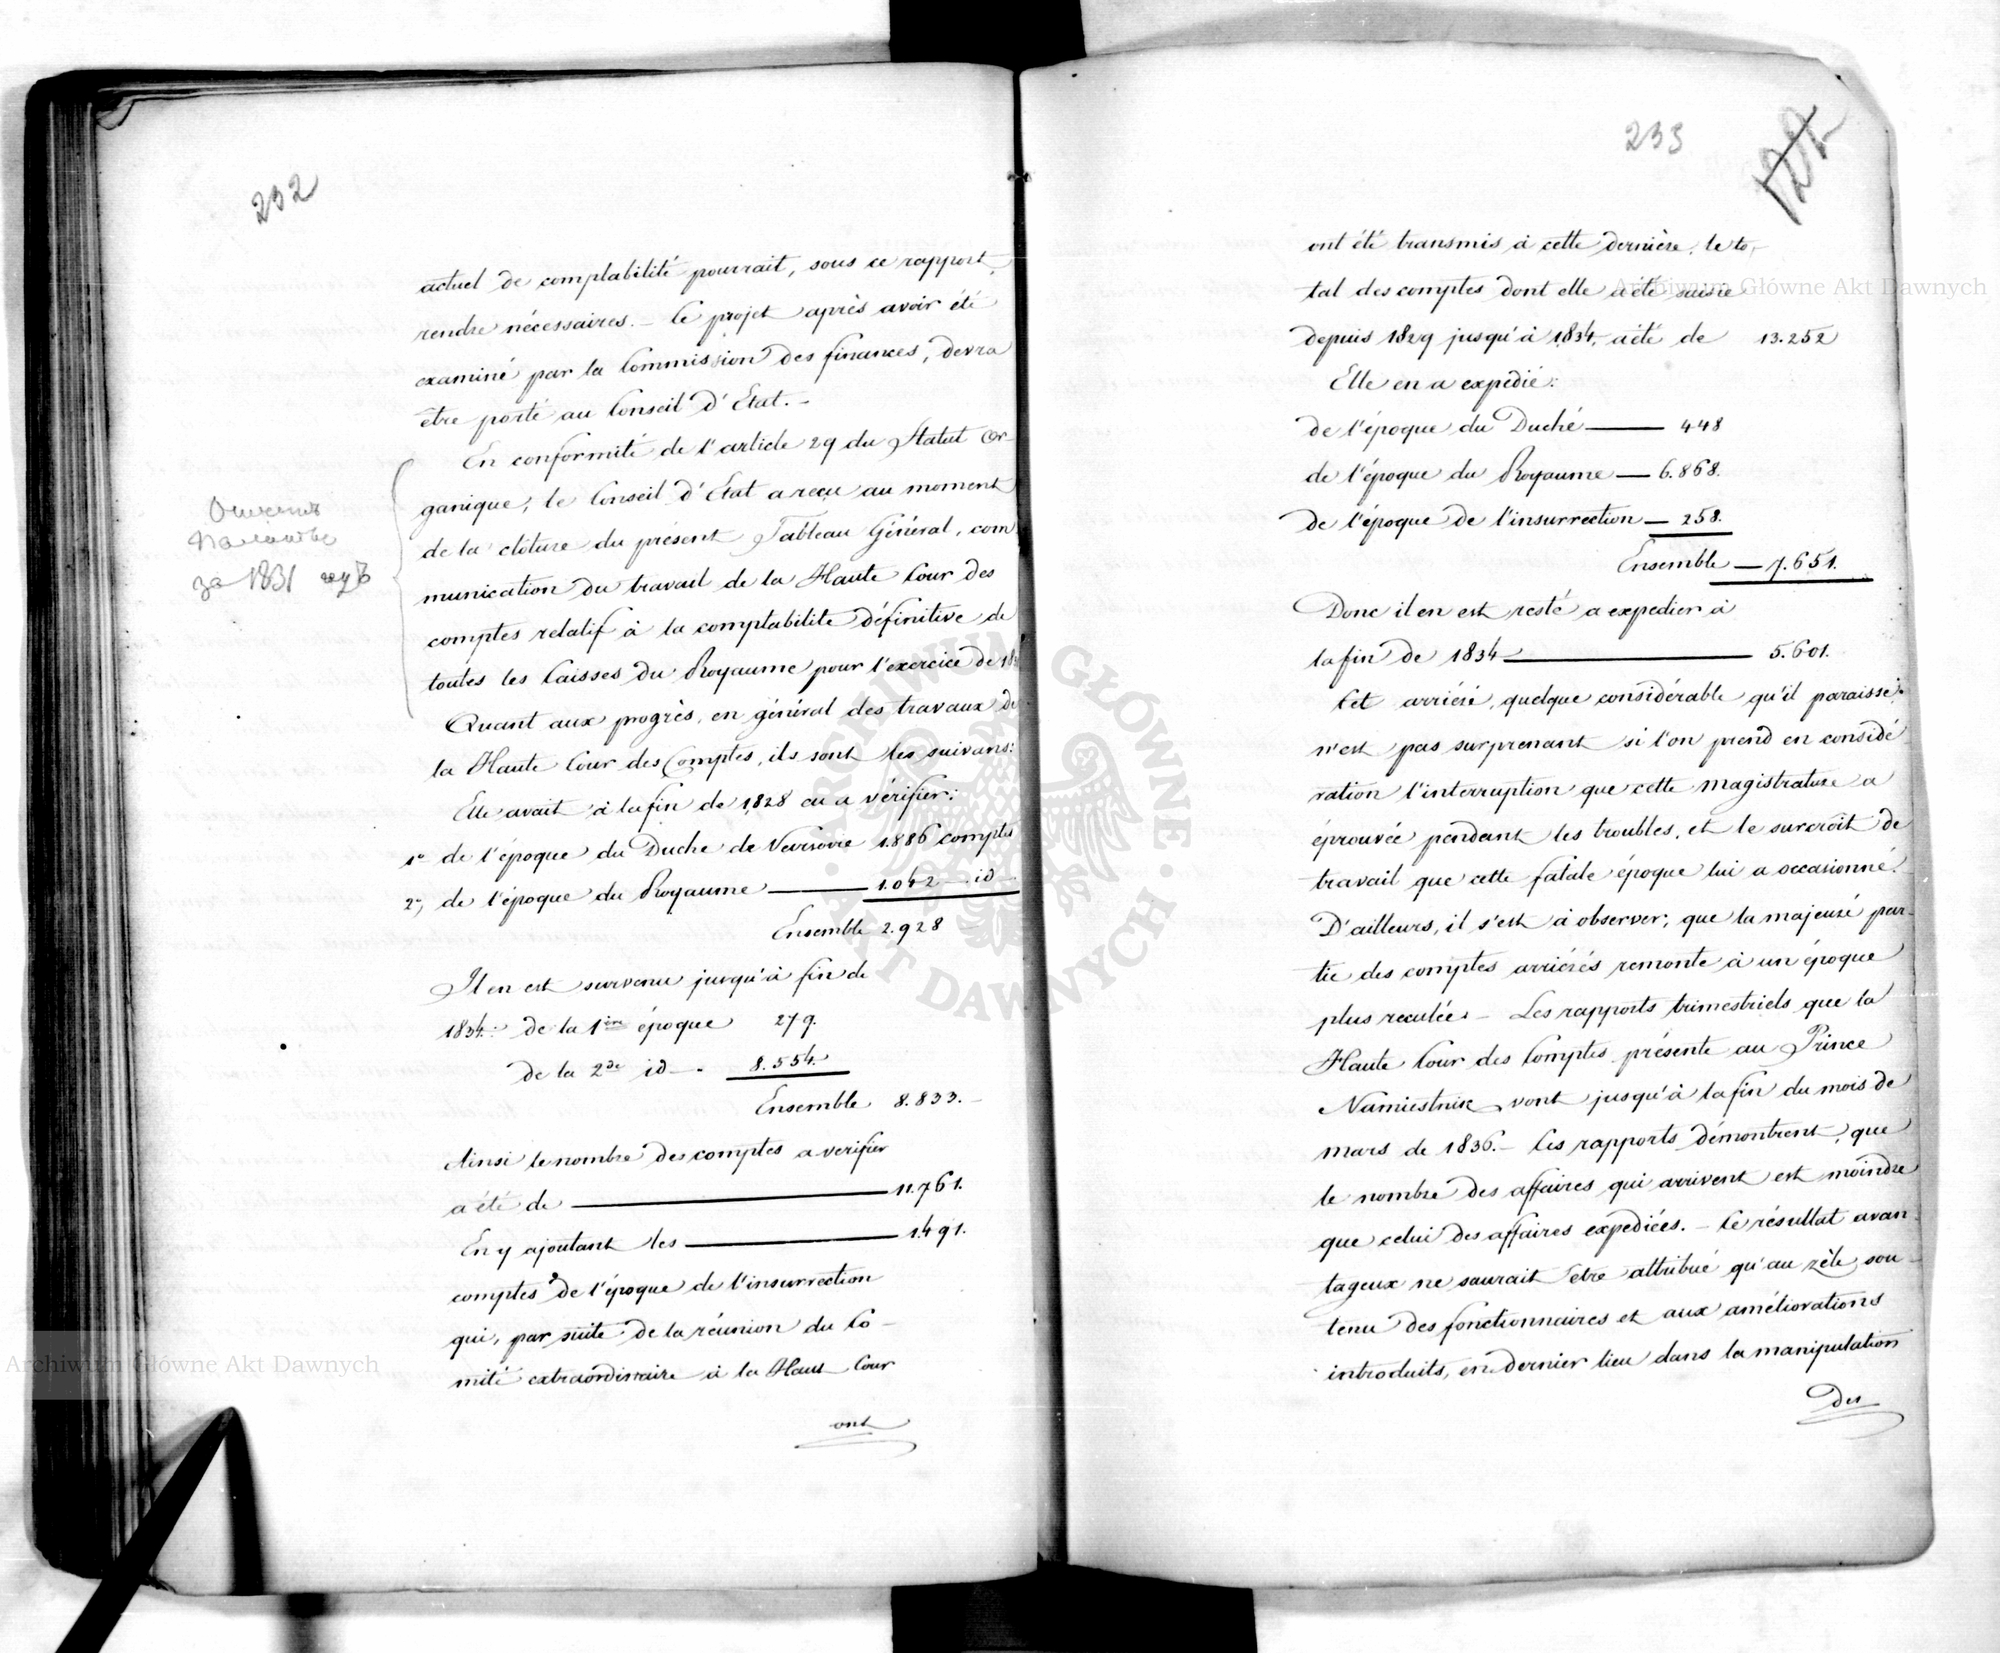 232
actuel de comptabilité pourrait, sous ce rapport,
rendre nécessaires. – Ce projet après avoir été
examiné par la Commission des finances, devra
être porté au Conseil d'Etat. –
En conformité de l'article 29 du Statut Or-
ganique, le Conseil d'Etat a reçu au moment
de la clôture du présent Tableau Général, com
munication du travail de la Haute Cour des
comptes relatif à la comptabilité définitive de
toutes les Caisses du Royaume pour l'exercice de
за 1831 годъ
Quant aux progrès, en général des travaux de
la Haute Cour des Comptes, ils sont les suivans:
Elle avait à la fin de 1828 eu a vérifier:
1° de l'époque du Duché de Varsovie 1.886 comptes
2°, de l'époque du Royaume — 1.042 — id —
Ensemble 2.928
Il en est survenu jusqu'à fin de
1834: de la 1ère époque 279.
de la 2de id — . 8.554.
Ensemble 8.833. –
Ainsi le nombre des comptes a verifier
a été de — 11.761.
En y ajoutant les — 1.491.
comptes de l'époque de l'insurrection
qui, par suite de la réunion du Co –
mité extraordinaire à la Haute Cour
ont
233
ont été transmis à cette dernière, le to-
tal des comptes dont elle a été saisie
depuis 1829 jusqu'à 1834, a été de 13.252
Elle en a expédié:
de l'époque du Duché — 448
de l'époque du Royaume — 6.868.
de l'époque de l'insurrection — 258.
Ensemble — 7.651.
Donc il en est resté a expedier à
la fin de 1834 — 5.601.
Cet arriéré, quelque considérable qu'il paraisse,
n'est pas surprenant si l'on prend en considé
ration l'interruption que cette magistrature a
éprouvée pendant les troubles, et le surcroit de
travail que cette fatale époque lui a occasionné.
D'ailleurs, il s'est à observer, que la majeure par-
tie des comptes arriérés remonte à un époque
plus reculée. – Les rapports trimestriels que la
Haute Cour des Comptes présente au Prince
Namiestnik vont jusqu'à la fin du mois de
mars de 1836. – Ces rapports démontrent, que
le nombre des affaires qui arrivent est moindre
que celui des affaires expédiées. – Ce résultat avan
tageux ne saurait etre attribué qu'au zèle sou –
tenu des fonctionnaires et aux améliorations
introduits, en dernier lieu dans la manipulation
des
Archiwum Główne Akt Dawnych
Archiwum Główne Akt Dawnych
ARCHIWUM GŁÓWNE · AKT DAWNYCH ·